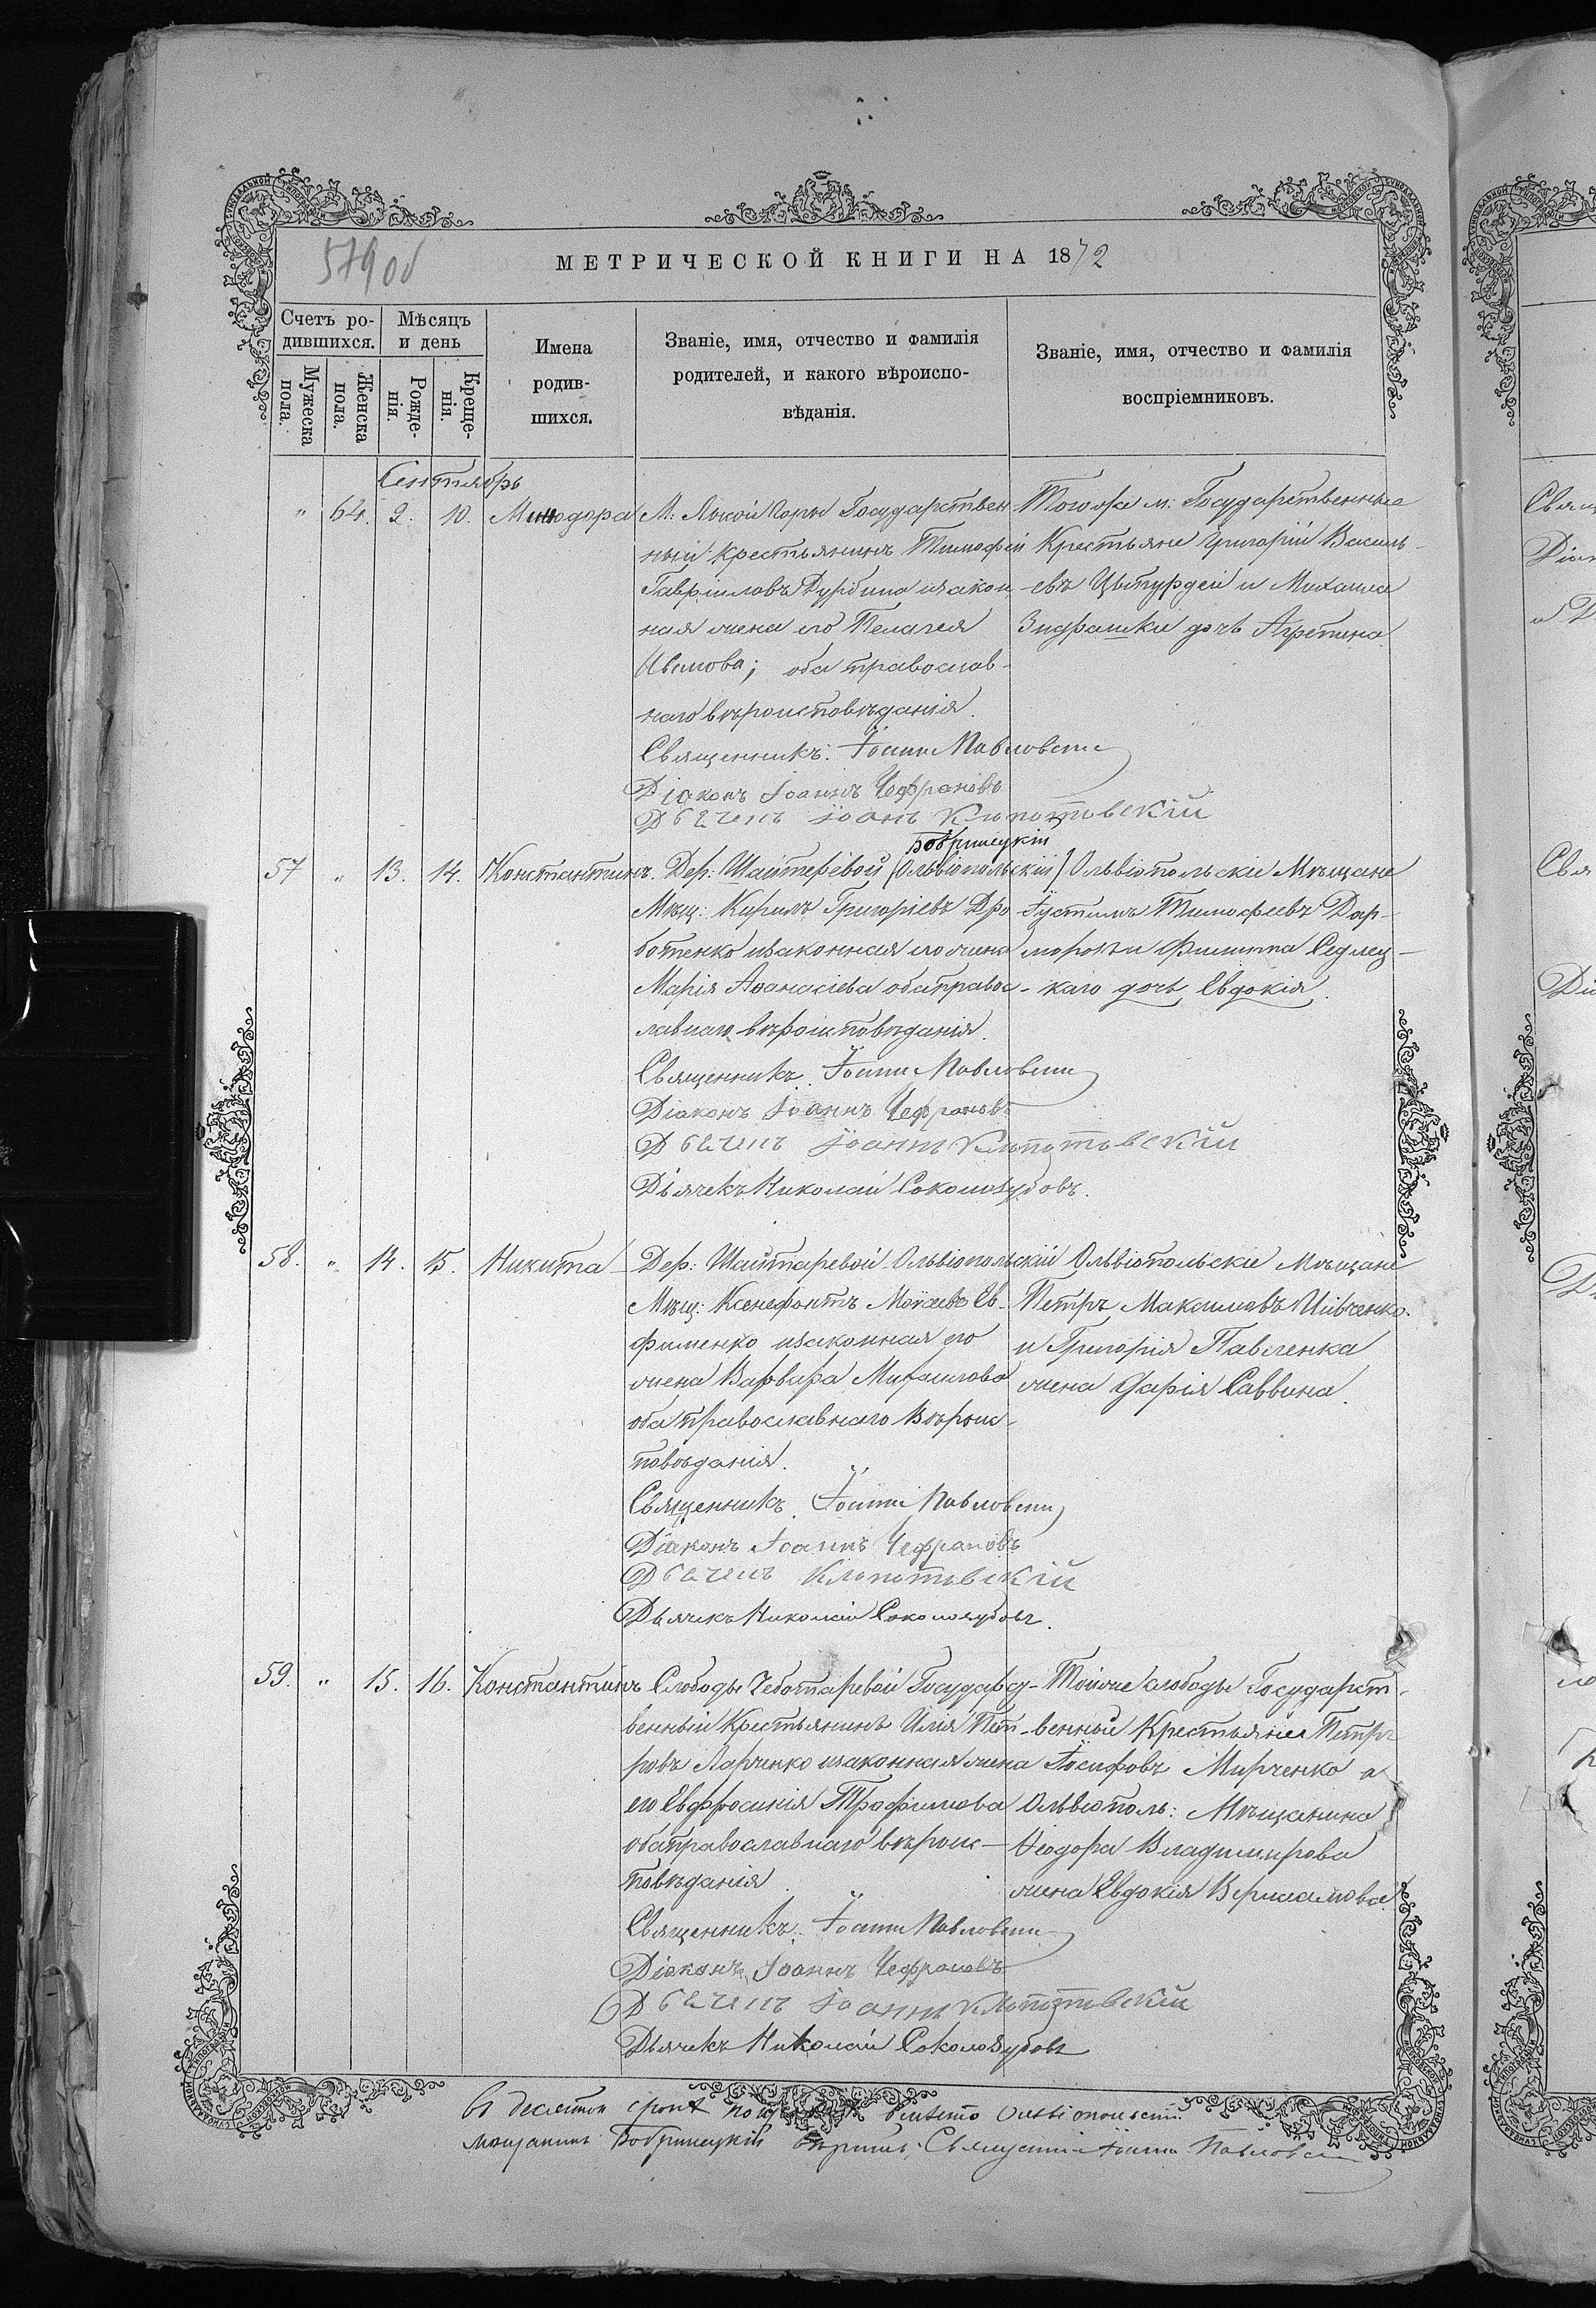 579 об
МЕТРИЧЕСКОЙ КНИГИ НА 1872
Счетъ ро-
дившихся.
Мѣсяцъ
и день
Мужеска
пола.
Женска
пола.
Рожде-
нія.
Креще-
нія.
Имена
родив-
шихся.
Званіе, имя, отчество и фамилія
родителей, и какого вѣроиспо-
вѣданія.
Званіе, имя, отчество и фамилія
воспріемниковъ.
Сентябрь
" 64. 2. 10. Минодора
М: Лысой Горы Государствен
ный крестьянинъ Тимофей
Гавріиловъ и закон
ная жена его Пелагея
оба православ-
наго вѣроисповѣданія.
Священникъ: Іоаннъ Павловскій
Діаконъ Іоаннъ Чефрановъ
Іоанъ Клопотовскій
Тогоже м: Государственные
Крестьяне Григорій Василь-
евъ и Михаила
дочь Агрепина.
57 " 13. 14. Константинъ.
Бобринецкій
Дер: Шайтеревой (Ольвіопольскій)
Мѣщ: Кирилъ Григоріевъ Дро
ботенко и законная его жена
Марія Аѳанасіева оба правос-
лавнаго вѣроисповѣданія.
Священникъ. Іоаннъ Павловскій
Діаконъ Іоаннъ Чефрановъ
Іоаннъ Клопотовскій
Дьячекъ Николай Соколозубовъ.
Ольвіопольскіе Мѣщане
Іустинъ Тимофеевъ Дар-
и Филиппа Седлец-
каго дочь Евдокія.
58. " 14. 15. Никита
Дер: Шайтаревой Ольвіопольскій
Мѣщ: Ксенефонтъ Моѵсеевъ Ев-
фименко и законная его
жена Варвара Михаилова
оба православнаго вѣроис-
повѣданія.
Священникъ. Іоаннъ Павловскій
Діаконъ Іоаннъ Чефрановъ
Клопотовскій
Дьячекъ Николай Соколозубовъ.
Ольвіопольскіе Мѣщане
Петръ Максимовъ Шевченко.
и Григорія Павленка
жена Дарія Саввина.
59. " 15. 16. Константинъ
Слободы Чеботаревой Государст-
венный Крестьянинъ Илія Пет-
ровъ Ларченко и законная жена
его Евфросинія Трофимова
оба православнаго вѣроис-
повѣданія
Священникъ. Іоаннъ Павловскій
Діаконъ, Іоаннъ Чефрановъ
Іоаннъ Клопотовскій
Дьячекъ Николай Соколозубовъ
Тойже слободы Государст-
венный Крестьянинъ Петръ
Іосифовъ Мирченко а
Ольвіополь: Мѣщанина
Ѳеодора Владимирова
жена Евдокія Варлаамова.
въ десятой строкѣ вмѣсто Ольвіопольскій
мѣщанинъ Бобринецкій вѣрить. Священникъ Іоаннъ Павловскій